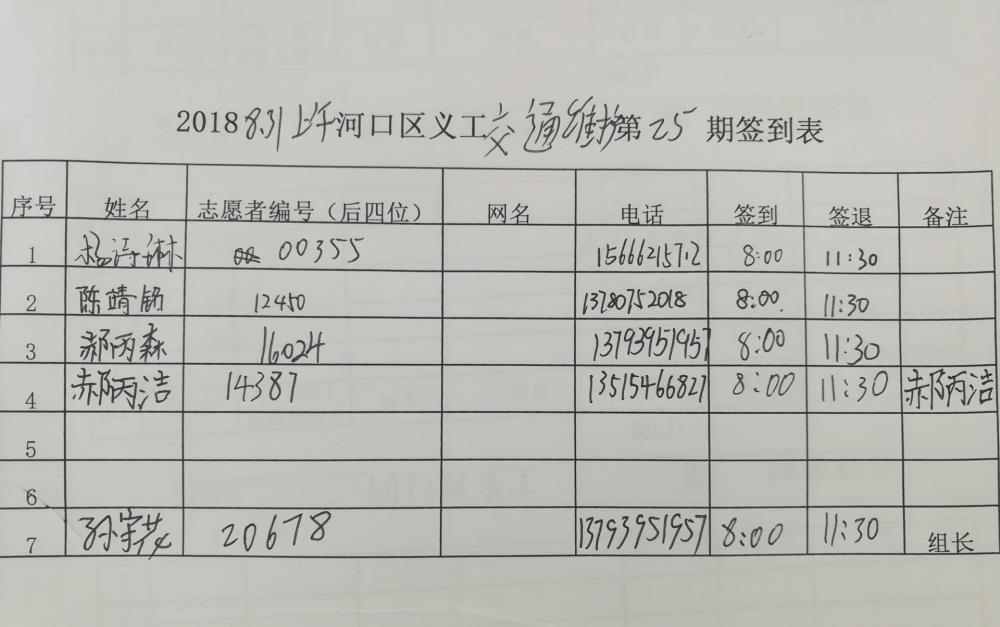 2018 8.31上午河口区义工交通维护第25期签到表
序号 姓名 志愿者编号（后四位） 网名 电话 签到 签退 备注
1 杨诗琳 00355 15666215712 8:00 11:30
2 陈靖 12450 13780752018 8:00 11:30
3 郝丙森 16024 13793951957 8:00 11:30
4 郝丙洁 14387 13515466827 8:00 11:30 郝丙洁
5
6
7 孙宇 20678 13793951957 8:00 11:30 组长